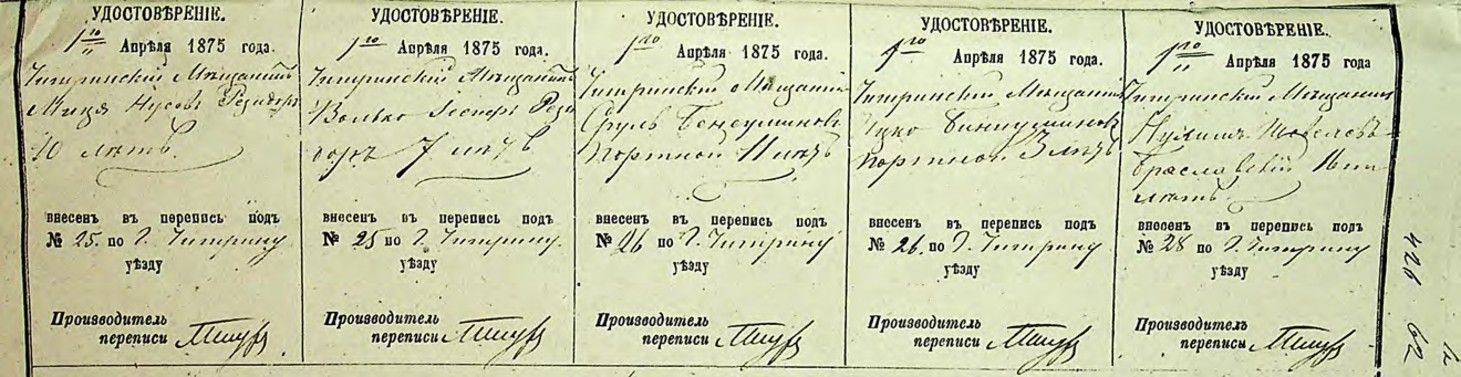 УДОСТОВѢРЕНІЕ.
1го Апрѣля 1875 года.
Чигиринскій Мѣщанинъ
Нусовъ
10 лѣтъ
внесенъ въ перепись подъ
№ 25. по г. Чигирину
уѣзду
Производитель
переписи
УДОСТОВѢРЕНІЕ.
1го Апрѣля 1875 года.
Чигиринскій Мѣщанинъ
Волько
7 лѣтъ
внесенъ въ перепись подъ
№ 25 по г. Чигирину
уѣзду
Производитель
переписи
УДОСТОВѢРЕНІЕ.
1го Апрѣля 1875 года.
Чигиринскій Мѣщанинъ
Сруль
Портной 11 лѣтъ
внесенъ въ перепись подъ
№ 26 по г. Чигирину
уѣзду
Производитель
переписи
УДОСТОВѢРЕНІЕ.
1го Апрѣля 1875 года.
Чигиринскій Мѣщанинъ
Ицко
Портной 3 лѣтъ
внесенъ въ перепись подъ
№ 26. по г. Чигирину
уѣзду
Производитель
переписи
УДОСТОВѢРЕНІЕ.
1го Апрѣля 1875 года
Чигиринскій Мѣщанинъ
Браславскій
лѣтъ
внесенъ въ перепись подъ
№ 28 по г. Чигирину
уѣзду
Производитель
переписи
426 62